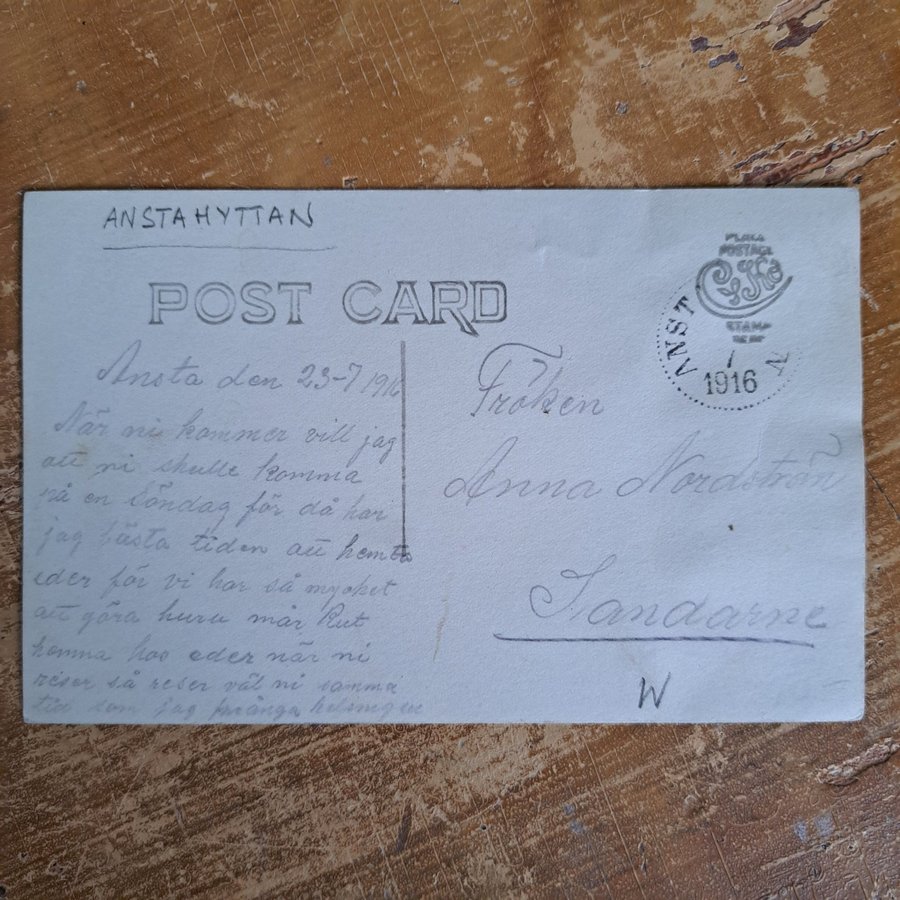 ANSTAHYTTAN
POST CARD
PLACE
POSTAGE
STAMP
HERE
ANST N
7
1916
Ansta den 23-7 1916
När ni kommer vill jag
att ni skulle komma
på en Söndag för då har
jag bästa tiden att hemta
eder för vi har så mycket
att göra huru mår Rut
komma hos eder när ni
reser så reser väl ni samma
tid som jag
Fröken
Anna Nordström
Sandarne
W